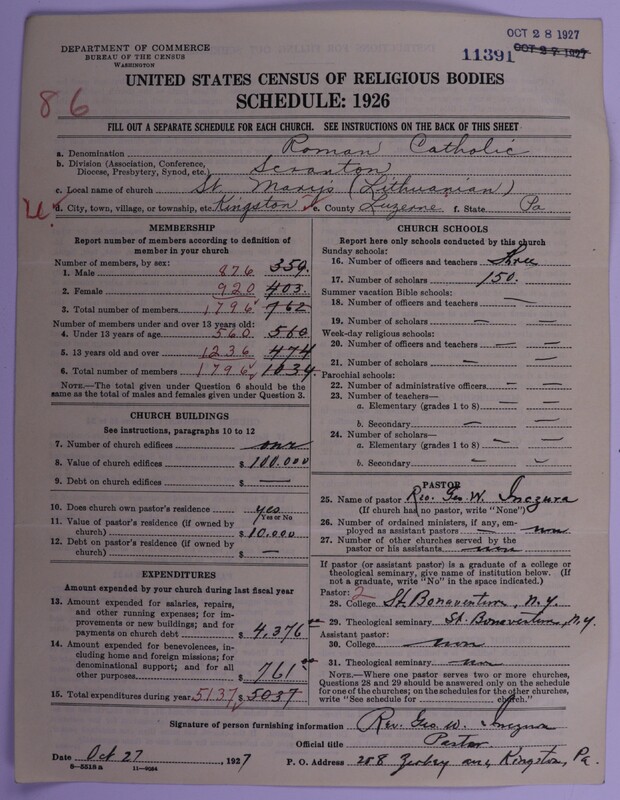 OCT 28 1927
DEPARTMENT OF COMMERCE
BUREAU OF THE CENSUS
WASHINGTON
11391 OCT 27 1927
UNITED STATES CENSUS OF RELIGIOUS BODIES
86
SCHEDULE: 1926
FILL OUT A SEPARATE SCHEDULE FOR EACH CHURCH. SEE INSTRUCTIONS ON THE BACK OF THIS SHEET
a. Denomination Roman Catholic
b. Division (Association, Conference, Diocese, Presbytery, Synod, etc.) Scranton
c. Local name of church St. Mary's (Lithuanian)
U. d. City, town, village, or township, etc. Kingston e. County Luzerne f. State Pa
MEMBERSHIP
Report number of members according to definition of
member in your church
Number of members, by sex:
1. Male 876 359.
2. Female 920 403.
3. Total number of members 1796 762
Number of members under and over 13 years old:
4. Under 13 years of age 560 560
5. 13 years old and over 1236 474
6. Total number of members 1796 1034
NOTE.—The total given under Question 6 should be the
same as the total of males and females given under Question 3.
CHURCH BUILDINGS
See instructions, paragraphs 10 to 12
7. Number of church edifices one
8. Value of church edifices $ 100.000
9. Debt on church edifices $ —
10. Does church own pastor's residence? yes
Yes or No
11. Value of pastor's residence (if owned by
church) $ 10.000
12. Debt on pastor's residence (if owned by
church) $ —
EXPENDITURES
Amount expended by your church during last fiscal year
13. Amount expended for salaries, repairs,
and other running expenses; for im-
provements or new buildings; and for
payments on church debt $ 4,376 00
14. Amount expended for benevolences,
including home and foreign missions; for
denominational support; and for all
other purposes $ 761 00
15. Total expenditures during year 5137 $ 5037
CHURCH SCHOOLS
Report here only schools conducted by this church
Sunday schools:
16. Number of officers and teachers three
17. Number of scholars 150.
Summer vacation Bible schools:
18. Number of officers and teachers —
19. Number of scholars — —
Week-day religious schools:
20. Number of officers and teachers — —
21. Number of scholars — —
Parochial schools:
22. Number of administrative officers — —
23. Number of teachers—
a. Elementary (grades 1 to 8) — —
b. Secondary — —
24. Number of scholars—
a. Elementary (grades 1 to 8) — —
b. Secondary — —
PASTOR
25. Name of pastor Rev. Geo. W. Inczura
(If church has no pastor, write "None")
26. Number of ordained ministers, if any, em-
ployed as assistant pastors — non
27. Number of other churches served by the
pastor or his assistants non
If pastor (or assistant pastor) is a graduate of a college or
theological seminary, give name of institution below. (If
not a graduate, write "No" in the space indicated.)
Pastor: 2
28. College St. Bonaventure, N.Y.
29. Theological seminary St. Bonaventure, N.Y.
Assistant pastor:
30. College non
31. Theological seminary non
NOTE.—Where one pastor serves two or more churches,
Questions 28 and 29 should be answered only on the schedule
for one of the churches; on the schedules for the other churches,
write "See schedule for church."
Signature of person furnishing information Rev. Geo. W. Inczura
Official title Pastor.
Date Oct 27, 1927 P. O. Address 258 Zerbey ave, Kingston, Pa.
8—5518 a 11—9064